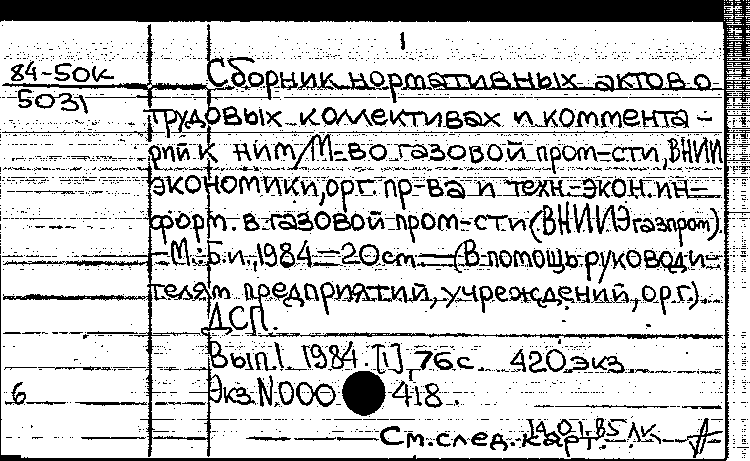 84-50к Сборник нормативных актов о
5031 трудовых коллективах и коммента-
рий к ним/М-во газовой пром-сти, ВНИИ
экономики, орг. пр-ва и техн.-экон. ин-
форм. в газовой пром-сти (ВНИИЭгазпром).
-М.: Б.и., 1984 - 20 см. - (В помощь руководи-
телям предприятий, учреждений, орг.).
ДСП.
Вып.1. 1984. [1], 76 с. 420 экз.
6 Экз. N000 418.
14.01.85 ЛК
См. след. карт.